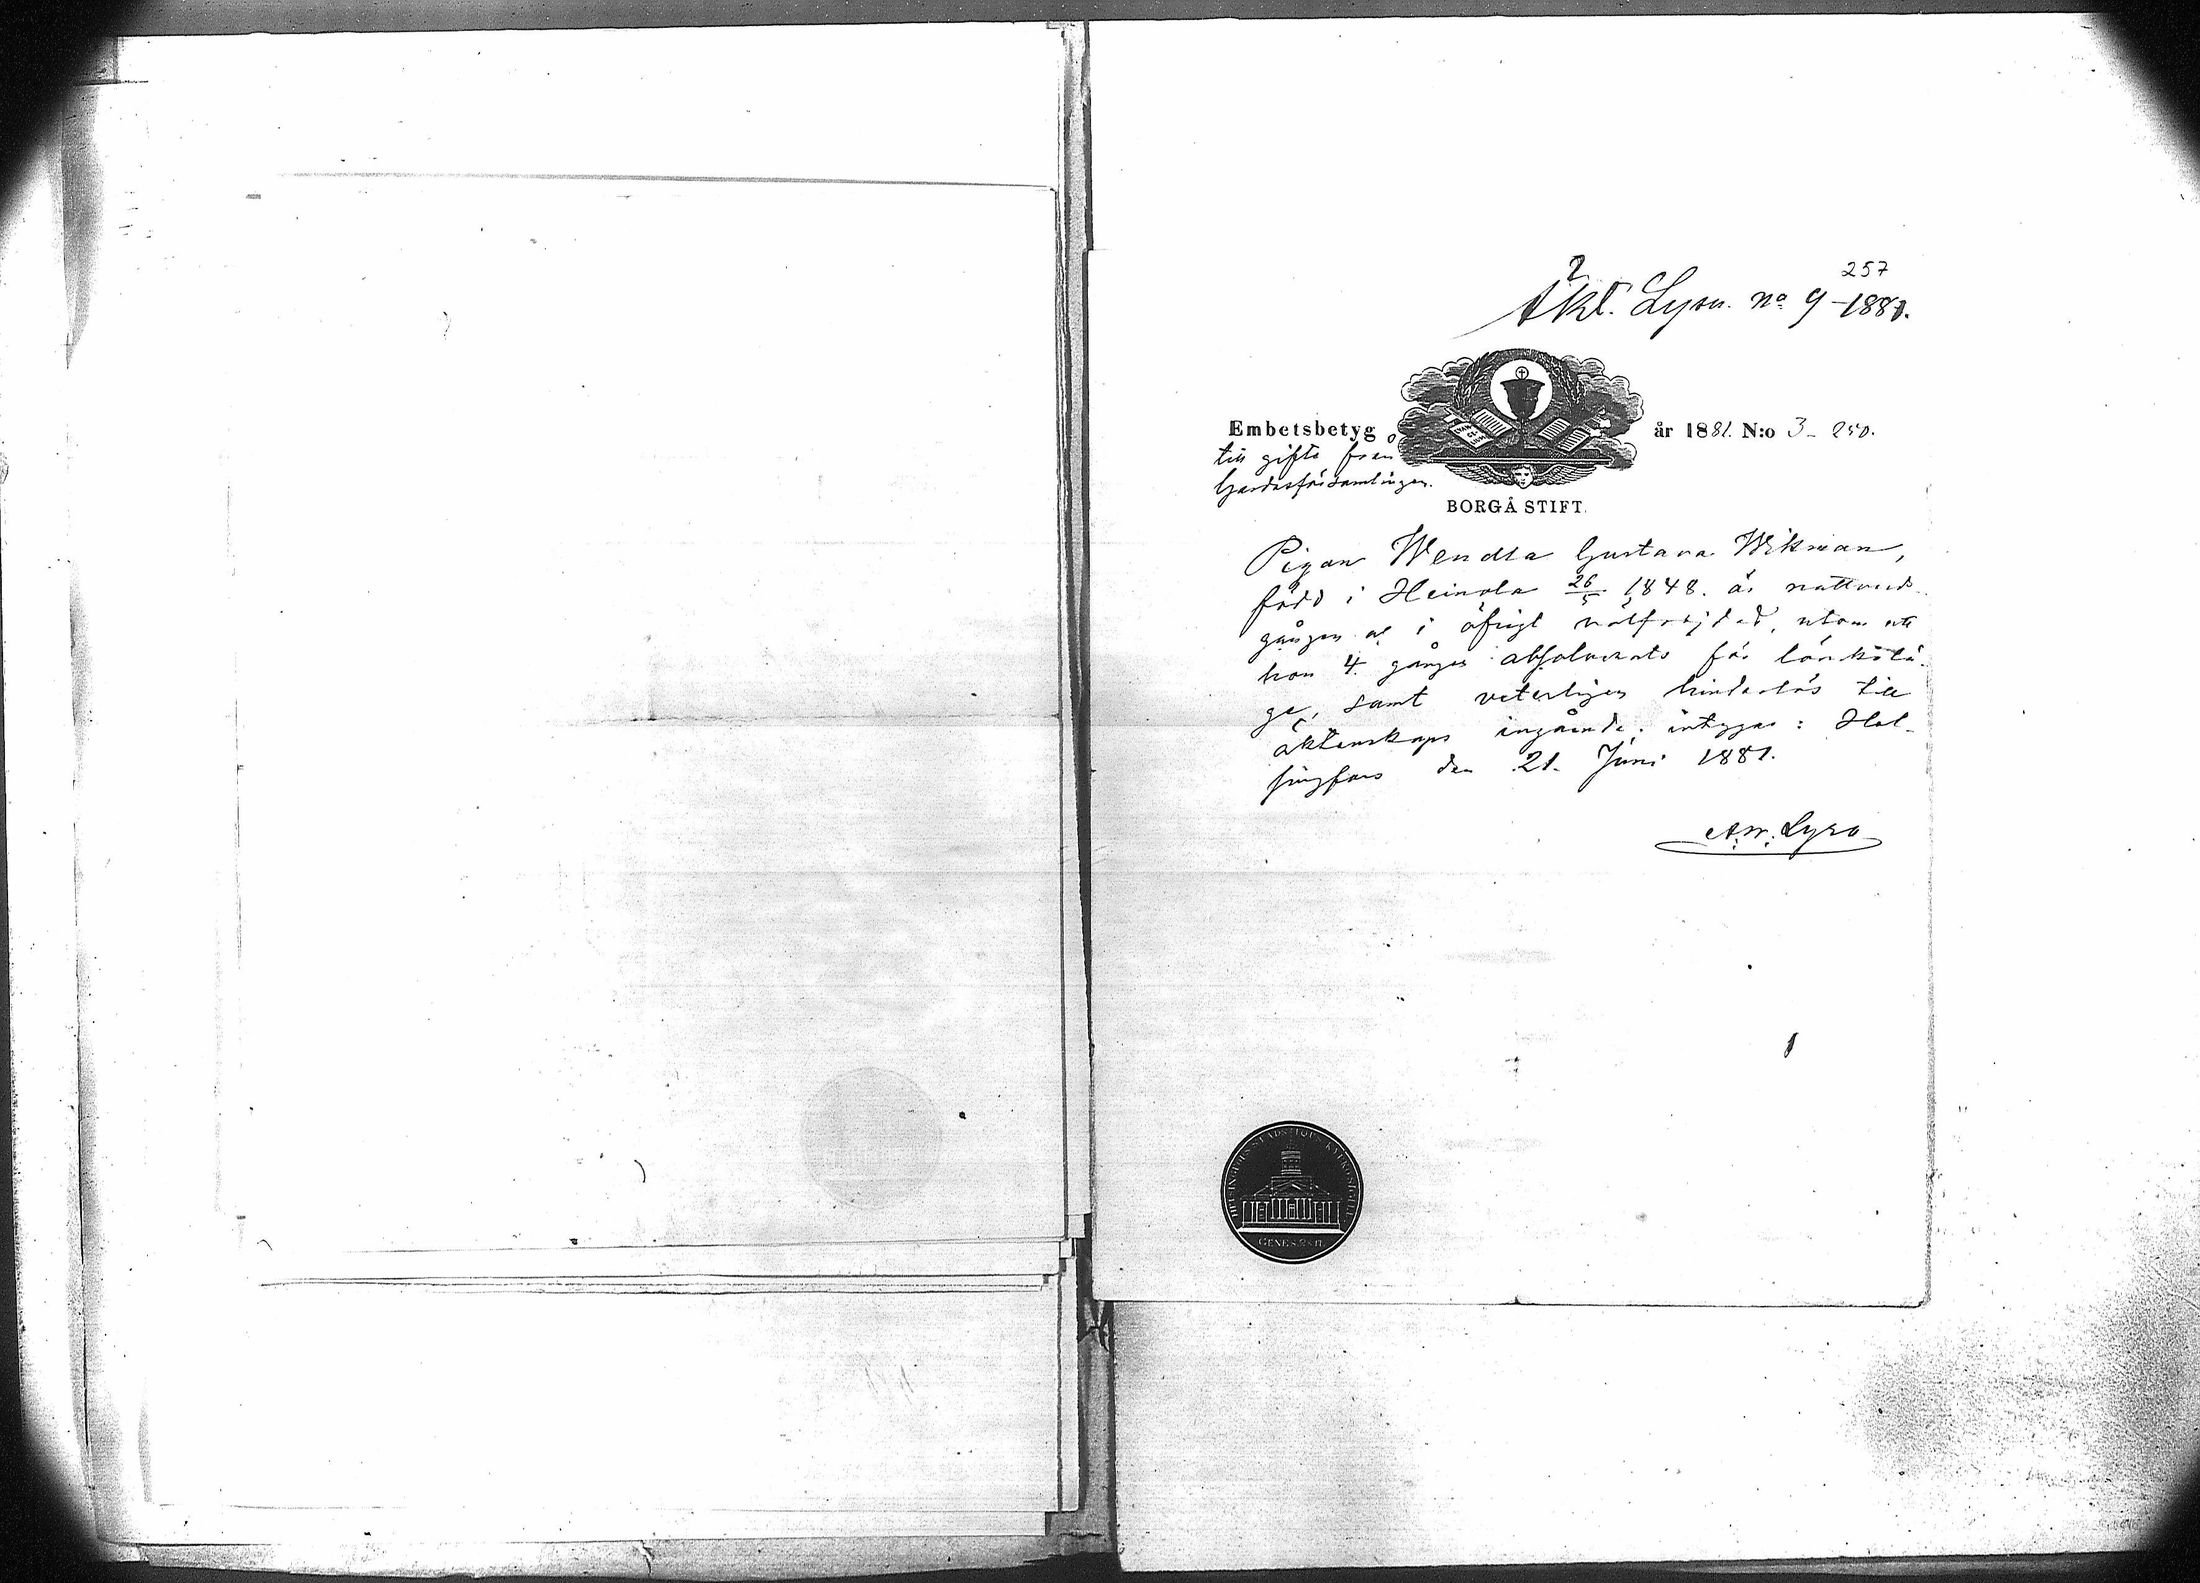 257
2
Äkt. Lysn. no 9-1881.
Embetsbetyg år 1881. N:o 3- 250.
till gifte från
Gardesförsamlingen.
BORGÅ STIFT.
Pigan Wendla Gustava Wikman,
född i Heinola 26/5 1848. är nattvard-
gången och i öfrigt välfrejdad, utom att
hon 4 gånger absolverats för lönskalä-
ge, samt veterligen hinderlös till
äktenskaps ingående; intygas: Hel-
singfors den 21. Juni 1881.
GENES. 28:17.